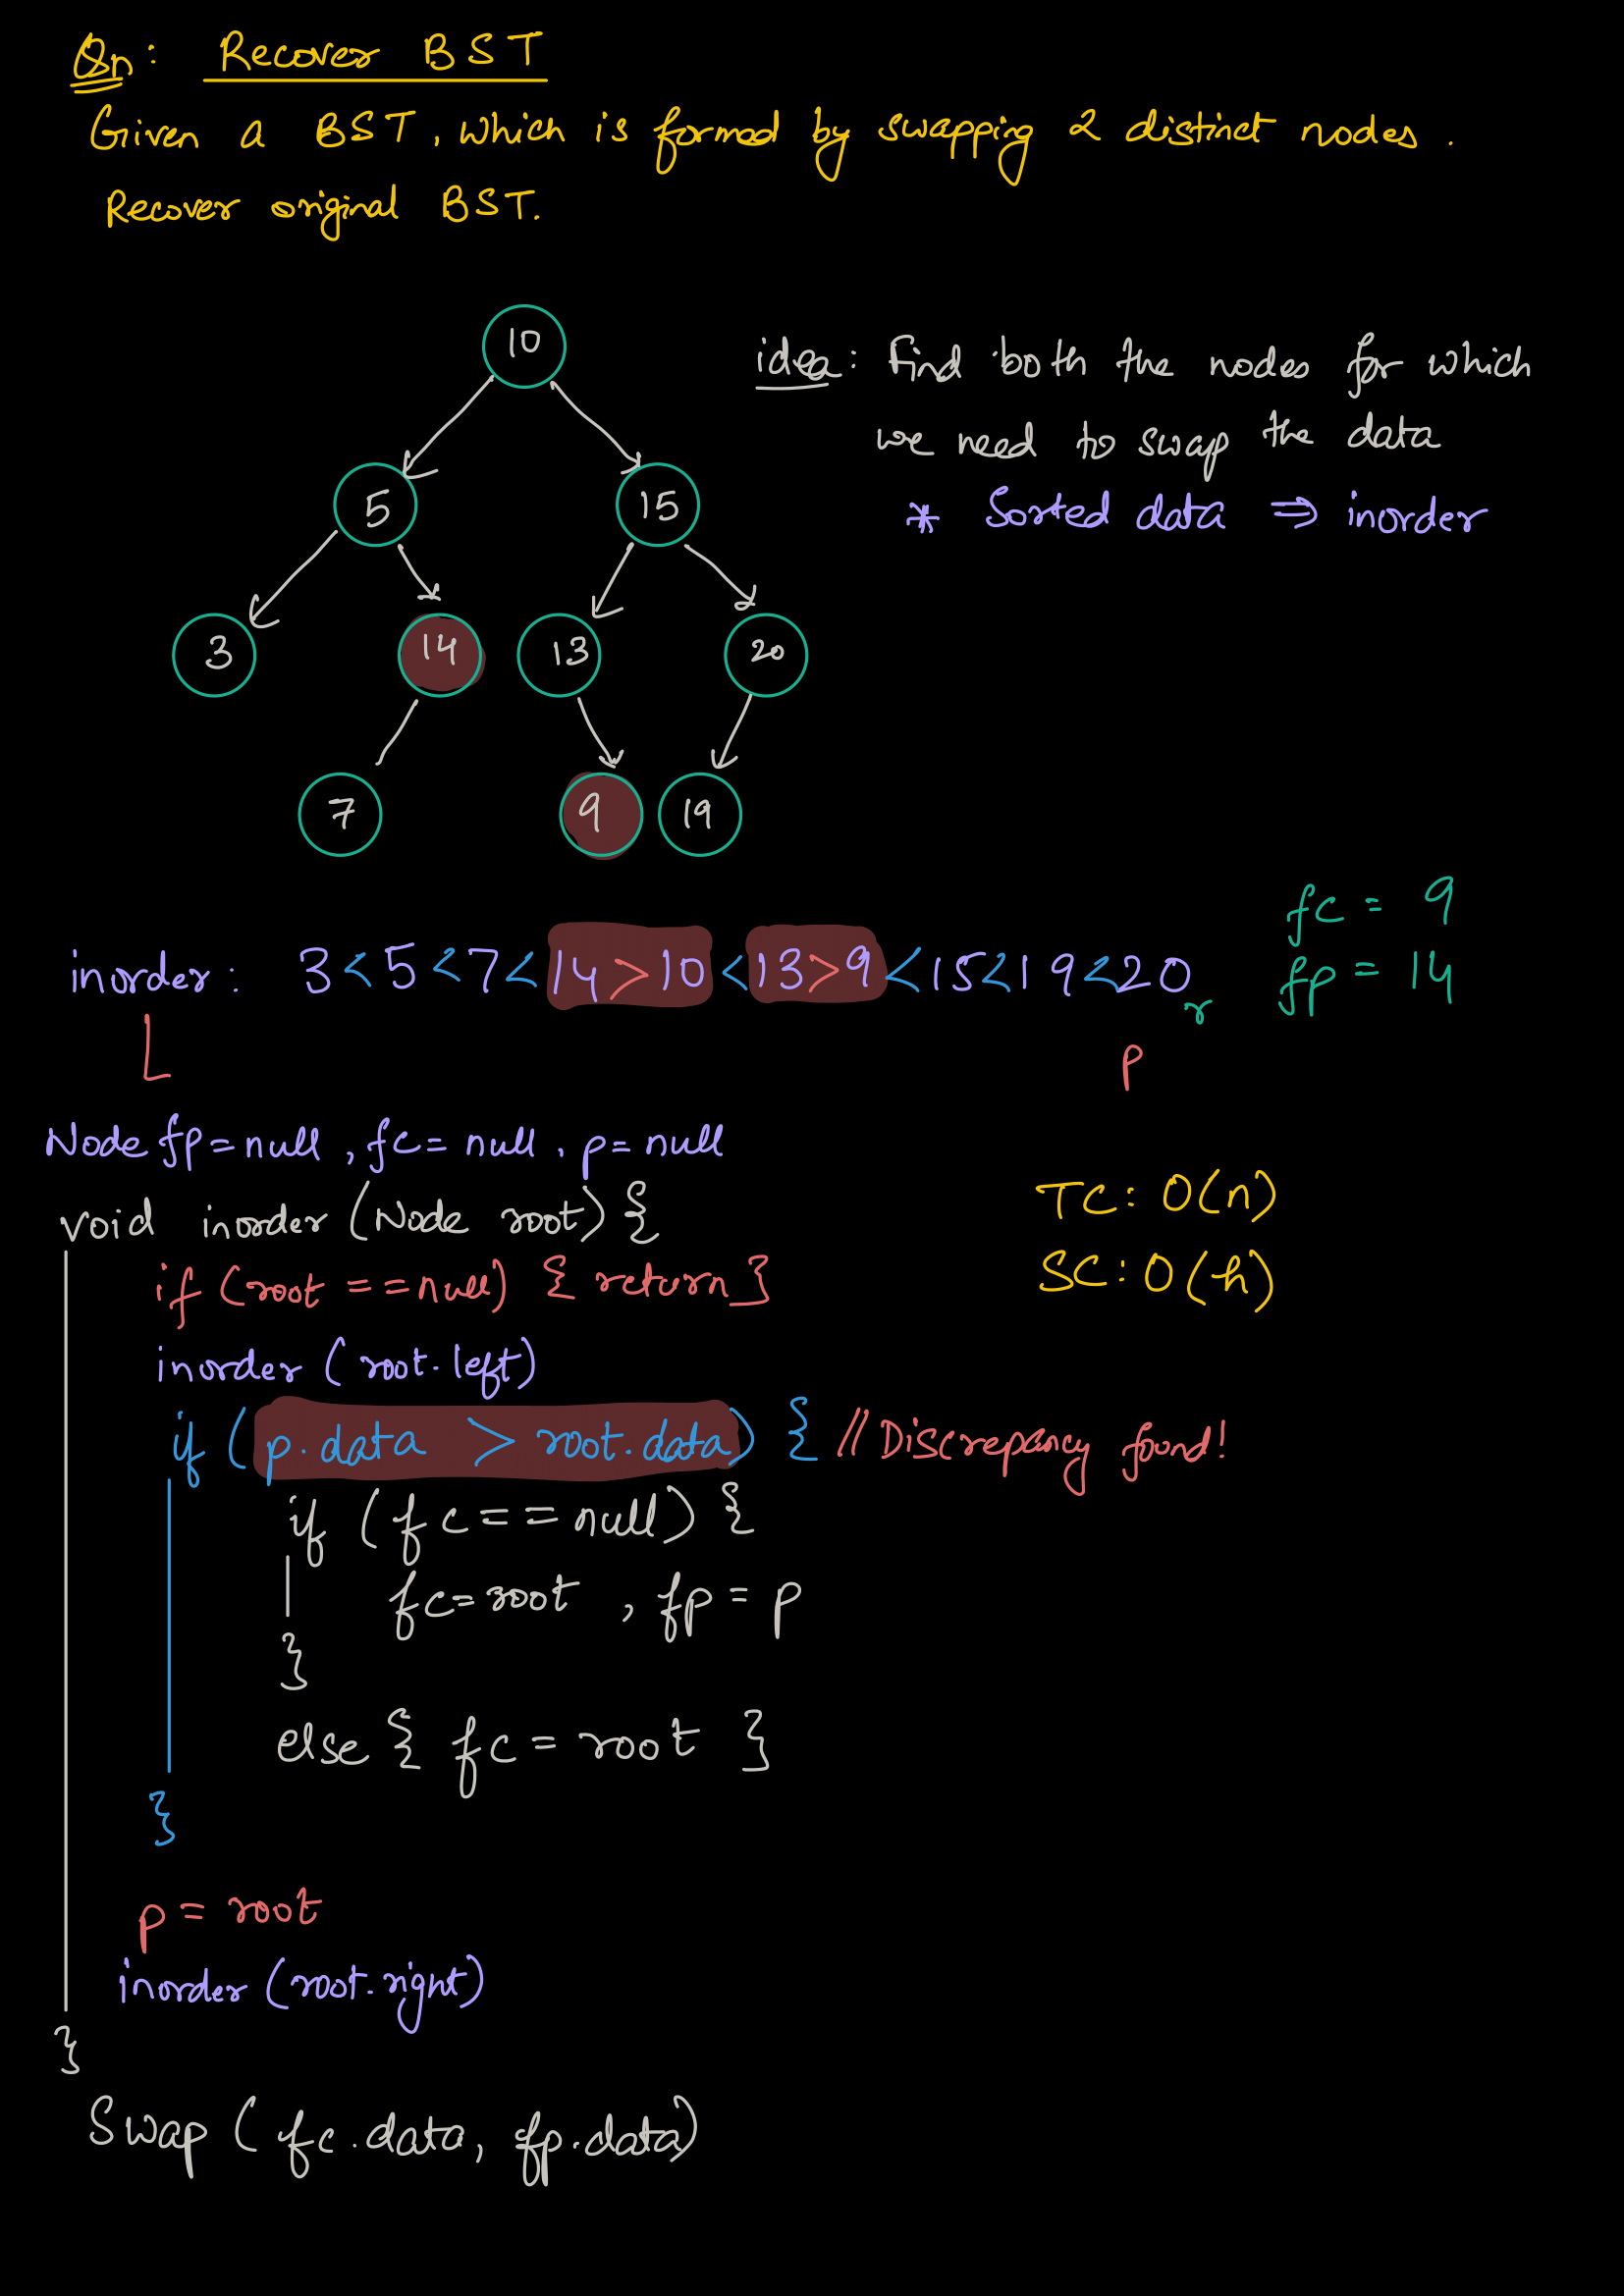 Qn: Recover BST
Given a BST, which is formed by swapping 2 distinct nodes.
Recover original BST.
10
5 15
3 14 13 20
7 9 19
idea: find both the nodes for which
we need to swap the data
* Sorted data ⇒ inorder
fc = 9
inorder: 3 < 5 < 7 < 14 > 10 < 13 > 9 < 15 < 19 < 20 r
fp = 14
p
Node fp = null, fc = null, p = null
void inorder (Node root) {
if (root == null) { return }
inorder (root.left)
if (p.data > root.data) { // Discrepancy found!
if (fc == null) {
fc = root, fp = p
}
else { fc = root }
}
p = root
inorder (root.right)
}
Swap (fc.data, fp.data)
TC: O(n)
SC: O(h)